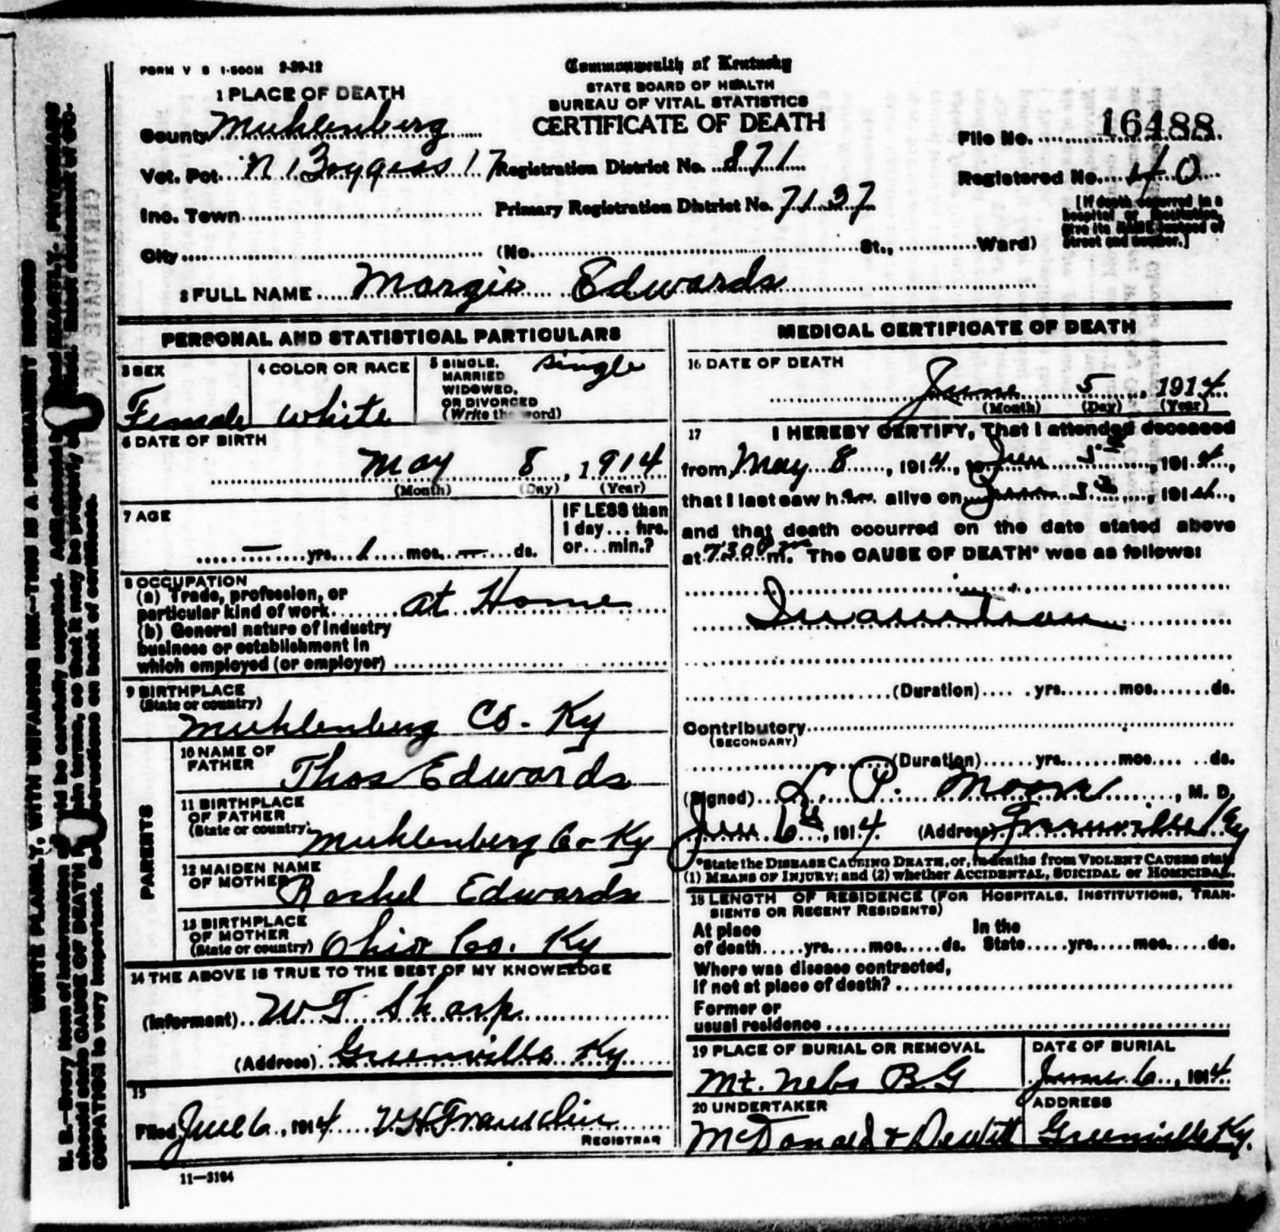 FORM V S 1-500M 2-29-12
Commonwealth of Kentucky
STATE BOARD OF HEALTH
BUREAU OF VITAL STATISTICS
CERTIFICATE OF DEATH
1 PLACE OF DEATH
County Muhlenberg
File No. 16488
Vot. Pct. N. Boggess 17 Registration District No. 871
Registered No. 40
Inc. Town Primary Registration District No. 7137
[If death occurred in a
hospital or institution,
give its NAME instead of
street and number.]
City (No. St., Ward)
2 FULL NAME Margie Edwards
PERSONAL AND STATISTICAL PARTICULARS
3 SEX
Female
4 COLOR OR RACE
White
5 SINGLE,
MARRIED
WIDOWED,
OR DIVORCED
(Write the word)
Single
6 DATE OF BIRTH
May 8, 1914
(Month) (Day) (Year)
7 AGE
— yrs. 1 mos. — ds.
IF LESS than
1 day... hrs.
or...min.?
8 OCCUPATION
(a) Trade, profession, or
particular kind of work At Home
(b) General nature of industry
business or establishment in
which employed (or employer)
9 BIRTHPLACE
(State or country)
Muhlenberg Co. Ky
PARENTS
10 NAME OF
FATHER Thos Edwards
11 BIRTHPLACE
OF FATHER
(State or country) Muhlenberg Co Ky
12 MAIDEN NAME
OF MOTHER Rachel Edwards
13 BIRTHPLACE
OF MOTHER
(State or country) Ohio Co. Ky
14 THE ABOVE IS TRUE TO THE BEST OF MY KNOWLEDGE
(Informant) W T Sharp
(Address) Greenville Ky
15
Filed June 6, 1914 V H Franklin
REGISTRAR
11-3184
MEDICAL CERTIFICATE OF DEATH
16 DATE OF DEATH
June 5, 1914
(Month) (Day) (Year)
17 I HEREBY CERTIFY, That I attended deceased
from May 8, 1914, to Jun 5th, 1914,
that I last saw her alive on June 5th, 1914,
and that death occurred on the date stated above
at 730 m. The CAUSE OF DEATH* was as follows:
Inanition
(Duration) yrs. mos. ds.
Contributory
(SECONDARY)
(Duration) yrs. mos. ds.
(Signed) L. P. Moore, M. D.
Jun 6th, 1914 (Address) Greenville Ky
*State the DISEASE CAUSING DEATH, or, in deaths from VIOLENT CAUSES state
(1) MEANS OF INJURY; and (2) whether ACCIDENTAL, SUICIDAL or HOMICIDAL.
18 LENGTH OF RESIDENCE (FOR HOSPITALS, INSTITUTIONS, TRAN-
SIENTS OR RECENT RESIDENTS)
At place In the
of death yrs. mos. ds. State yrs. mos. ds.
Where was disease contracted,
if not at place of death?
Former or
usual residence
19 PLACE OF BURIAL OR REMOVAL
Mt. Nebo B G
DATE OF BURIAL
June 6, 1914
20 UNDERTAKER
McDonald & Dewitt
ADDRESS
Greenville Ky.
WRITE PLAINLY, WITH UNFADING INK—THIS IS A PERMANENT RECORD
N. B.—Every item of information should be carefully supplied. AGE should be stated EXACTLY. PHYSICIANS
should state CAUSE OF DEATH in plain terms, so that it may be properly classified. Exact statement of OC-
CUPATION is very important. See instructions on back of certificate.